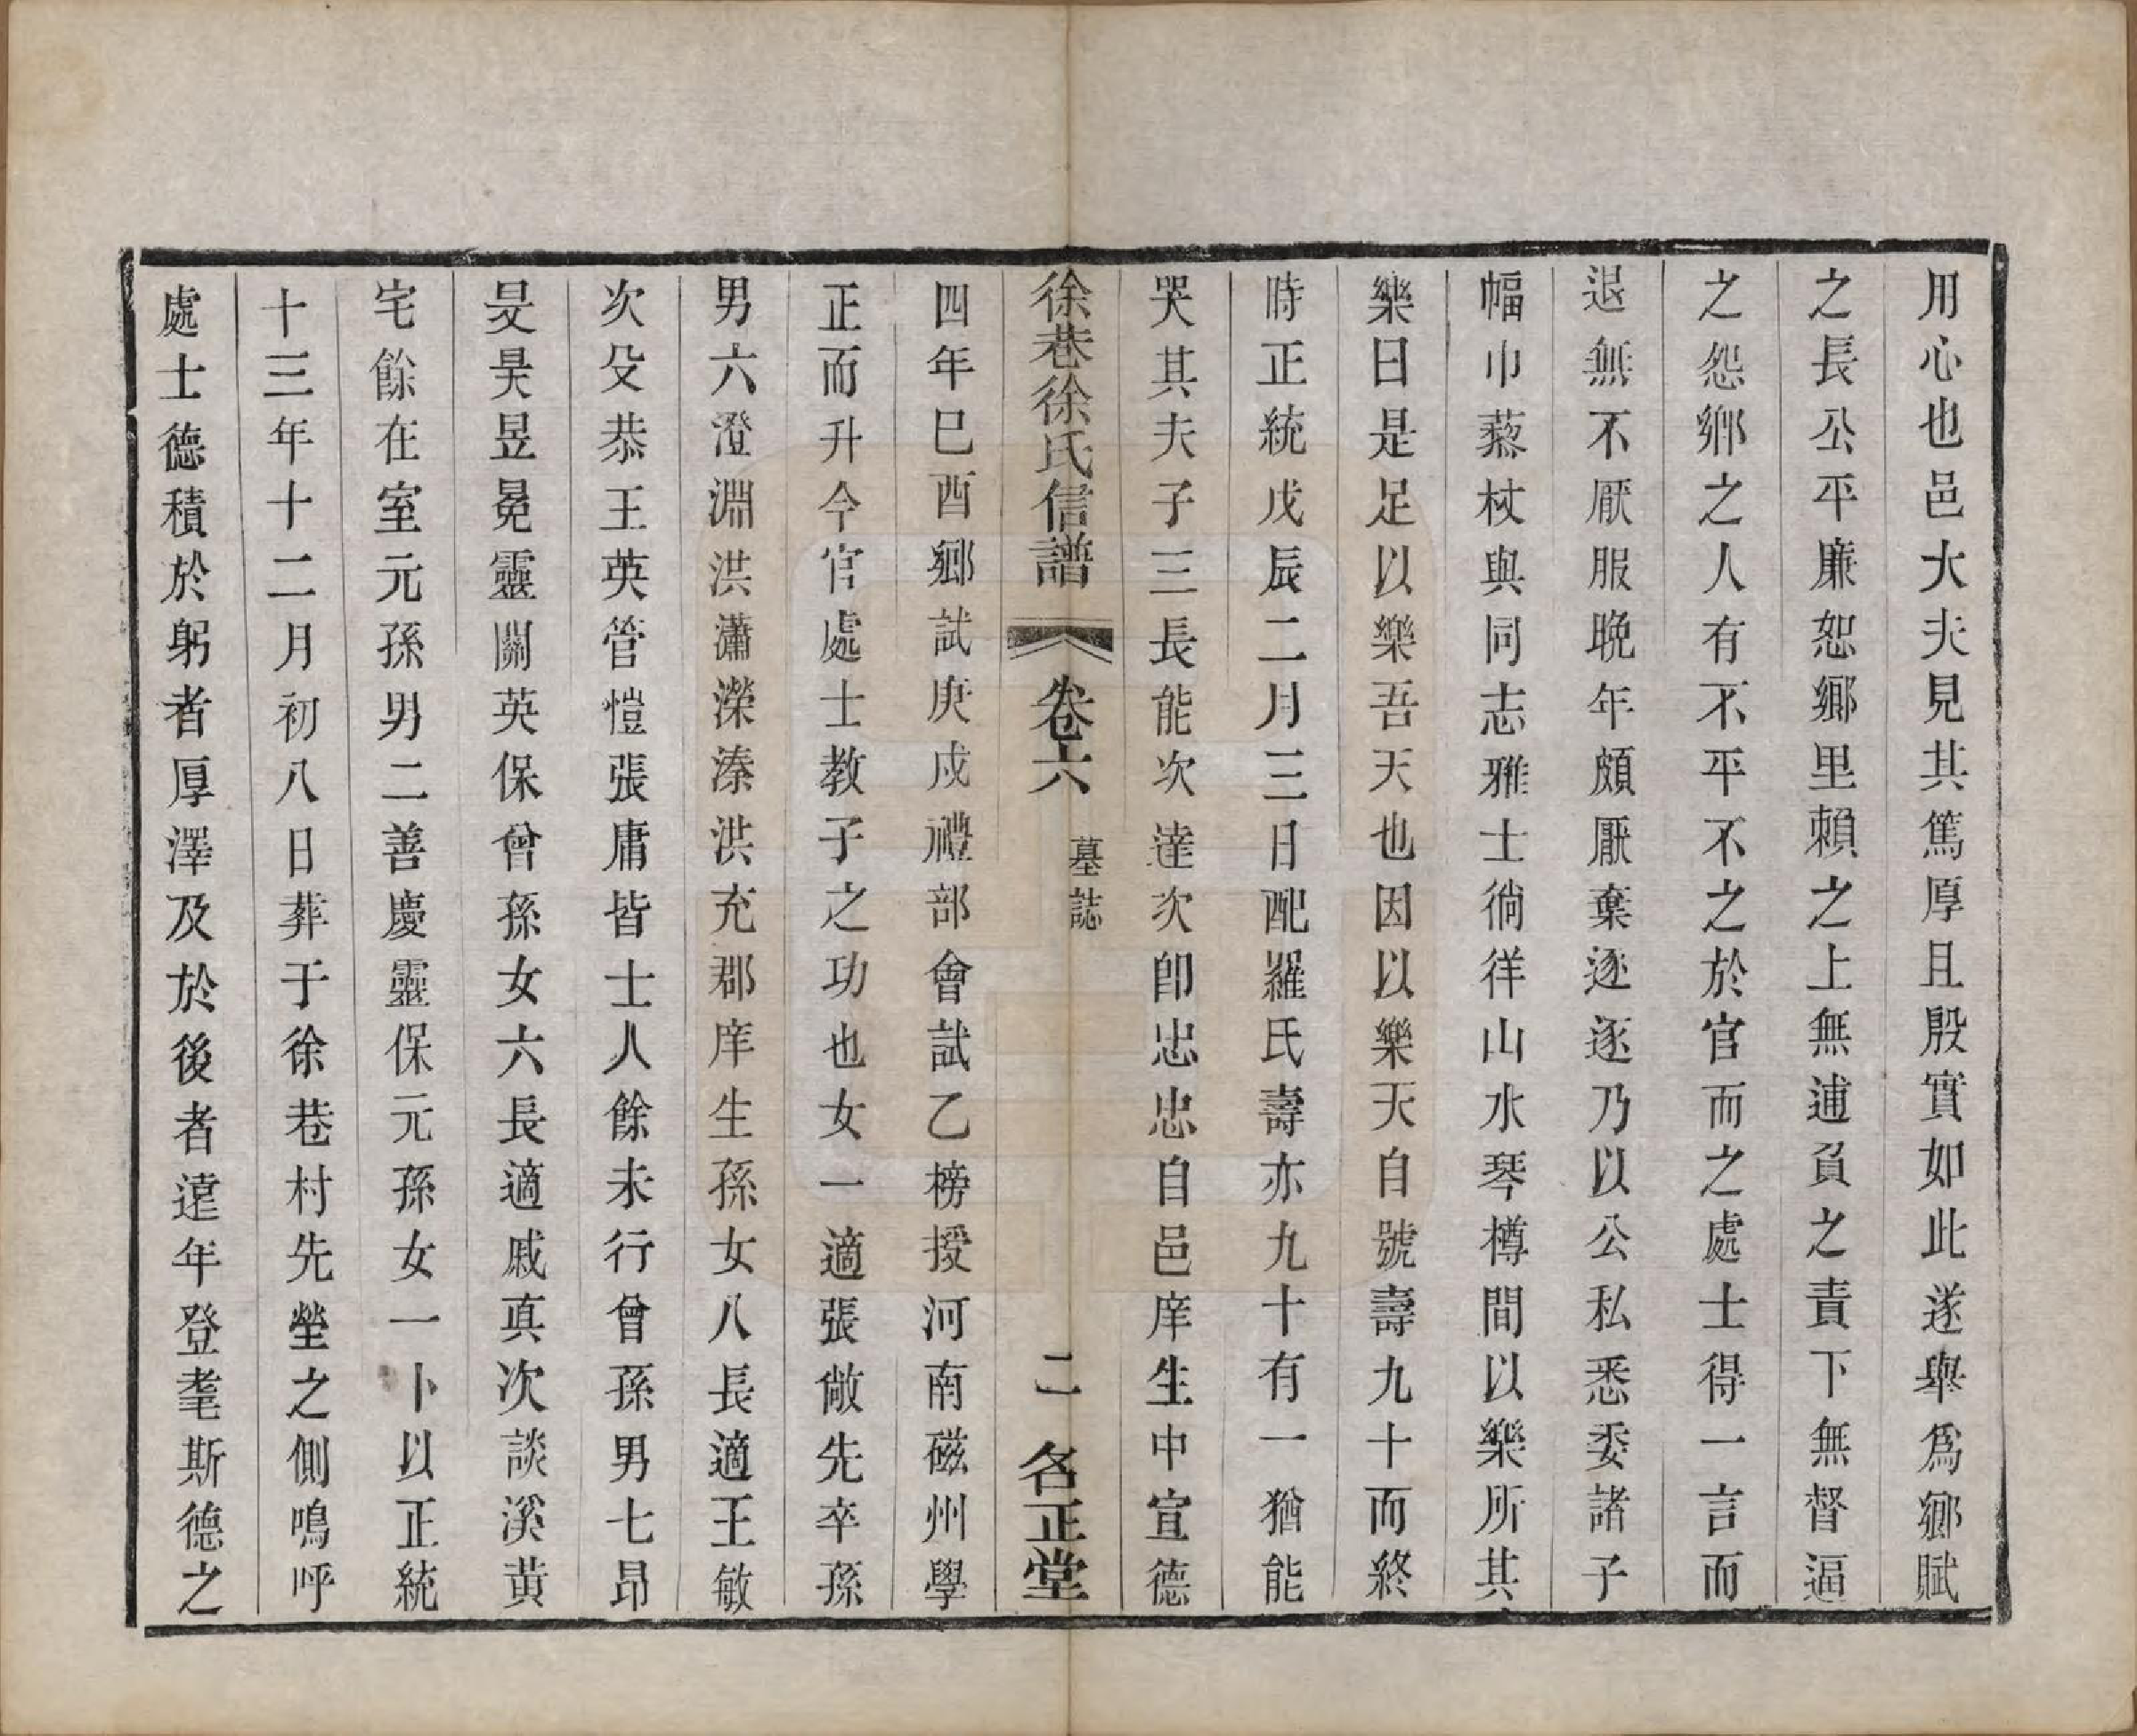 用心也邑大夫見其篤厚且殷實如此遂舉爲鄉賦
之長公平廉恕鄉里賴之上無逋負之責下無督逼
之怨鄉之人有不平不之於官而之處士得一言而
退無不厭服晚年頗厭棄逐逐乃以公私悉委諸子
幅巾藜杖與同志雅士徜徉山水琴樽間以樂所其
樂曰是足以樂吾天也因以樂天自號壽九十而終
時正統戊辰二月三日配羅氏壽亦九十有一猶能
哭其夫子三長能次達次卽忠忠自邑庠生中宣德
徐巷徐氏信譜 卷六 墓誌 二 名正堂
四年巳酉鄉試庚戌禮部會試乙榜授河南磁州學
正而升今官處士教子之功也女一適張敞先卒孫
男六澄淵洪瀟濚溱洪充郡庠生孫女八長適王敏
次殳恭王英管愷張庸皆士人餘未行曾孫男七昂
旻昊昱晃靈關英保曾孫女六長適戚真次談溪黄
宅餘在室元孫男二善慶靈保元孫女一卜以正統
十三年十二月初八日葬于徐巷村先塋之側嗚呼
處士德積於躬者厚澤及於後者遠年登耄斯德之